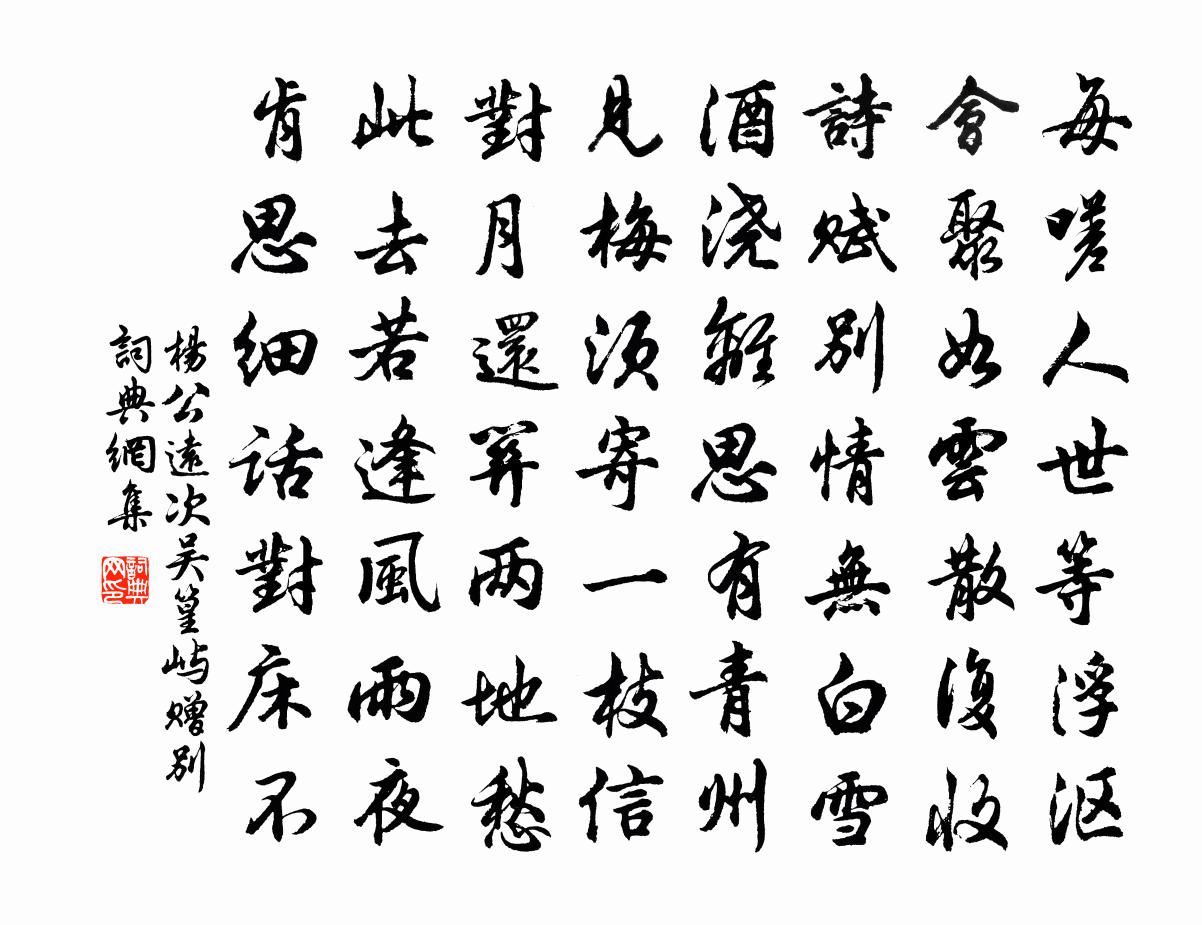 每嗟人世等浮沤
會聚如雲散復收
詩賦别情無白雪
酒浇離思有青州
見梅須寄一枝信
對月還算两地愁
此去若逢風雨夜
肯思细話對床不
楊公遠次吴篁屿赠别
詞典網集
詞典
网印